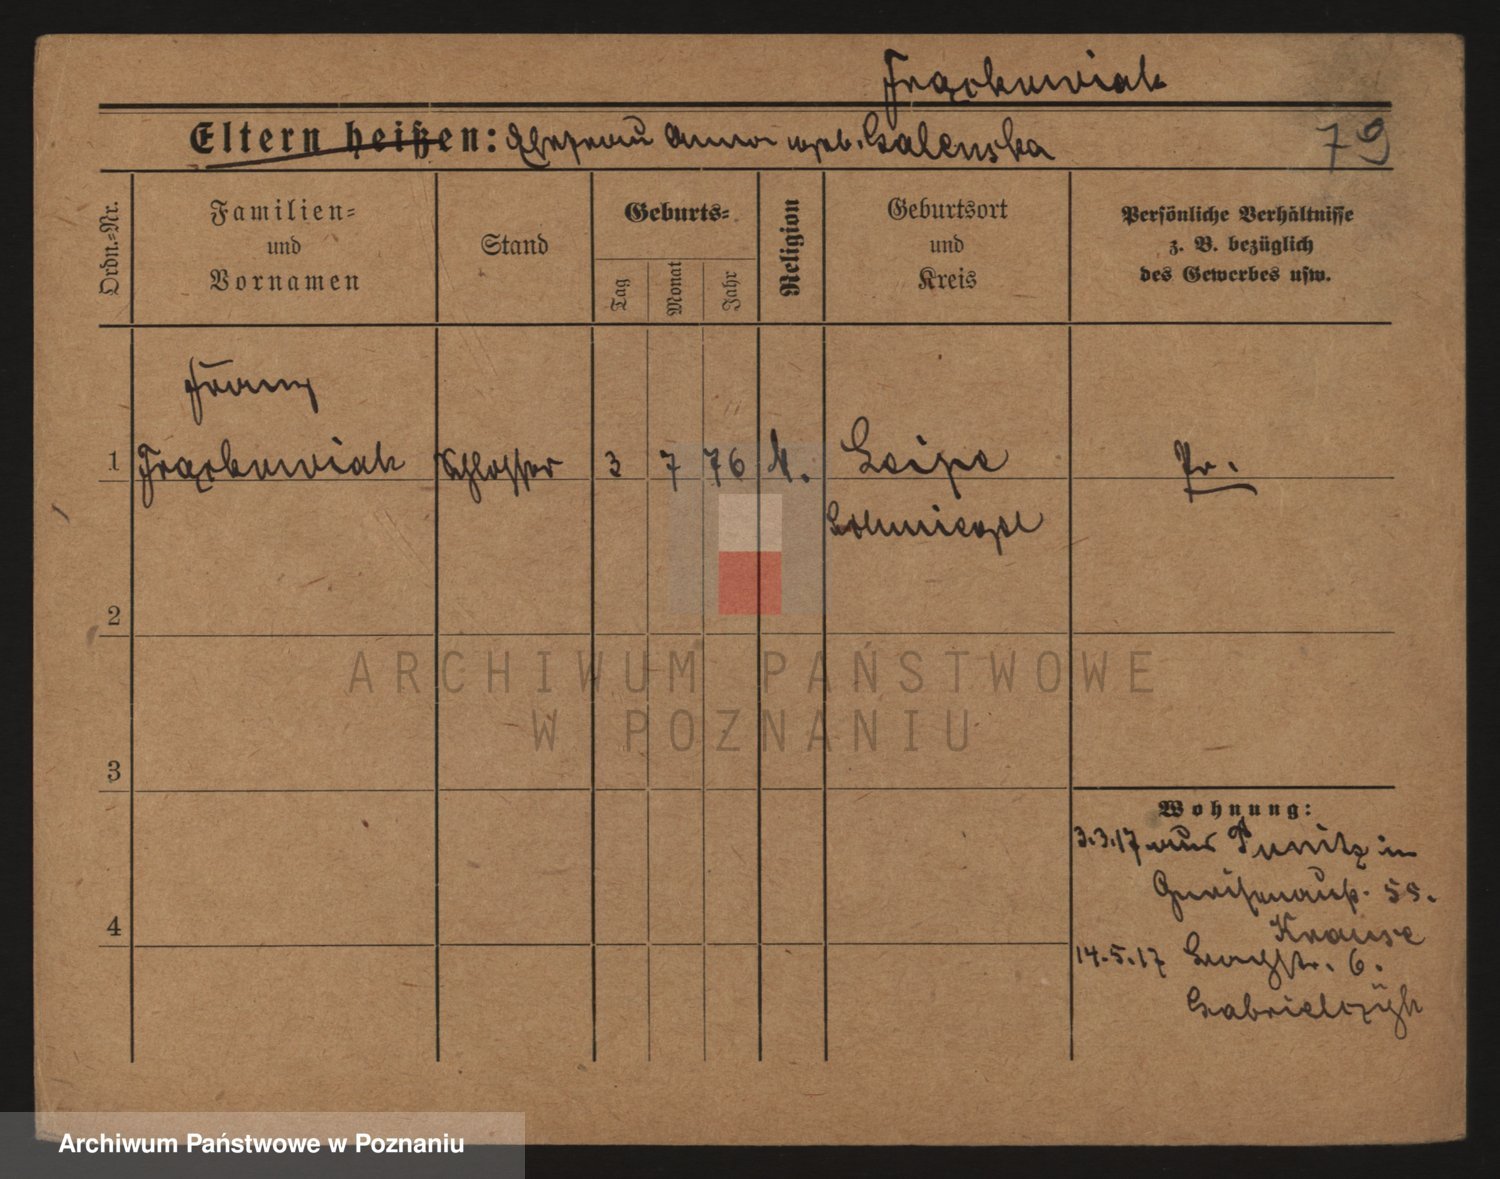 Frąckowiak
Eltern heißen: Ehefrau Anna geb. Galenska
79
Ordn.-Nr.
Familien-
und
Vornamen
Stand
Geburts-
Tag
Monat
Jahr
Religion
Geburtsort
und
Kreis
Persönliche Verhältnisse
z. B. bezüglich
des Gewerbes usw.
Franz
1 Frąckowiak Schlosser 3 7 76 k. Leipe Pr.
2
ARCHIWUM PAŃSTWOWE
W POZNANIU
3
Wohnung:
3.3.17 aus Punitz in
Gneisenaustr. 55.
Krause
4
14.5.17 Bachstr. 6.
Archiwum Państwowe w Poznaniu